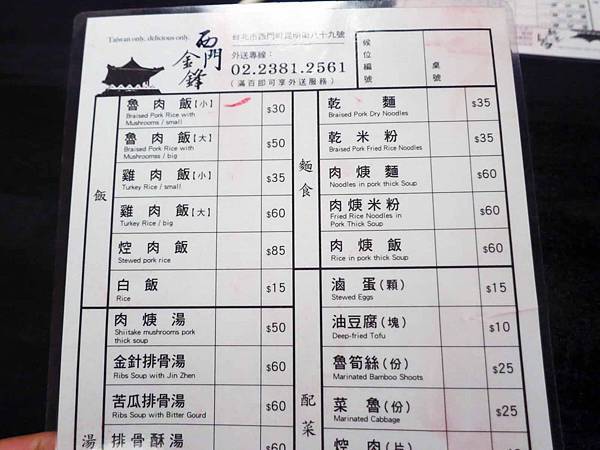 Taiwan only, delicious only.
西門
金鋒
台北市西門町昆明街八十九號
外送專線：
02.2381.2561
(滿百即可享外送服務)
候位編號
桌號
飯
魯肉飯【小】 $30
Braised Pork Rice with
Mushrooms / small
魯肉飯【大】 $50
Braised Pork Rice with
Mushrooms / big
雞肉飯【小】 $35
Turkey Rice / small
雞肉飯【大】 $60
Turkey Rice / big
焢肉飯 $85
Stewed pork rice
白飯 $15
Rice
湯
肉焿湯 $50
Shiitake mushrooms pork
thick soup
金針排骨湯 $60
Ribs Soup with Jin Zhen
苦瓜排骨湯 $60
Ribs Soup with Bitter Gourd
排骨酥湯 $60
麵食
乾麵 $35
Braised Pork Dry Noodles
乾米粉 $35
Braised Pork Fried Rice Noodles
肉焿麵 $60
Noodles in pork thick Soup
肉焿米粉 $60
Fried Rice Noodles in
Pork Thick Soup
肉焿飯 $60
Rice in pork thick Soup
配菜
滷蛋(顆) $15
Stewed Eggs
油豆腐(塊) $10
Deep-fried Tofu
魯筍絲(份) $25
Marinated Bamboo Shoots
菜魯(份) $25
Marinated Cabbage
焢肉(片)